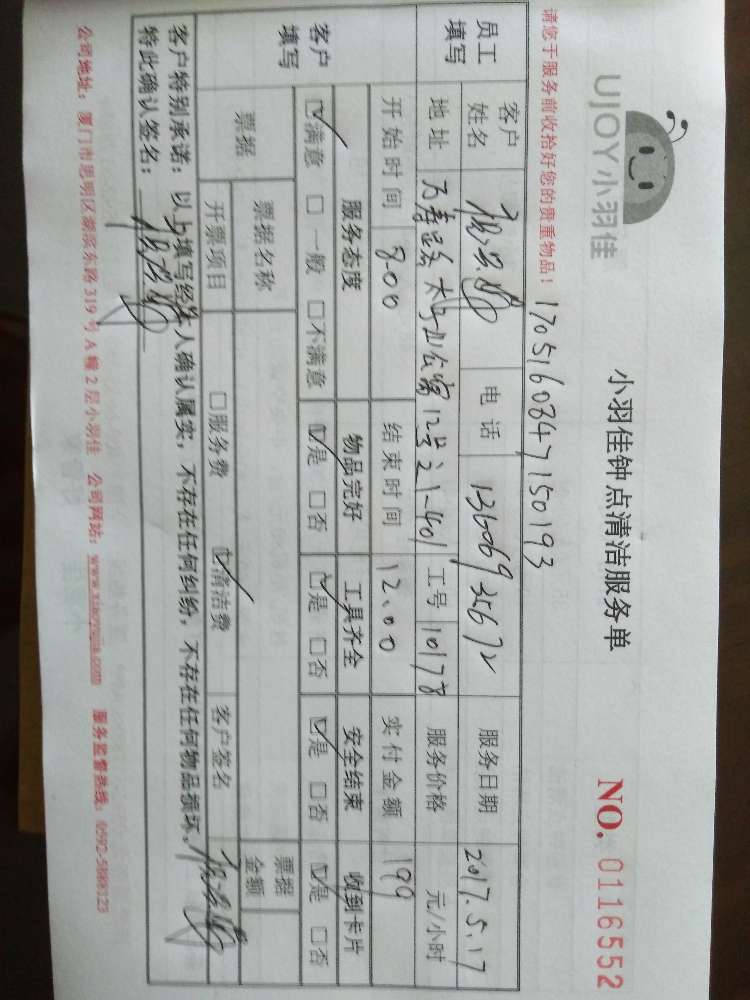 UJOY小羽佳
小羽佳钟点清洁服务单
NO. 0116552
请您于服务前收拾好您的贵重物品！
1705160847150193
员工填写
客户姓名
电话
13606935672
服务日期
2017.5.17
地址
太子山公寓12号之1-401
工号
10178
服务价格
元/小时
开始时间
8:00
结束时间
12:00
实付金额
199
客户填写
服务态度
物品完好
工具齐全
安全结束
收到卡片
☑满意 □一般 □不满意
☑是 □否
☑是 □否
☑是 □否
☑是 □否
票据
票据名称
票据金额
开票项目
□服务费 ☑清洁费
客户签名
客户特别承诺：以上填写经本人确认属实，不存在任何纠纷，不存在任何物品损坏。
特此确认签名：
公司地址：厦门市思明区湖滨东路319号A幢2层小羽佳 公司网站：www.xiaoyujia.com 服务监督热线：0592-5888123